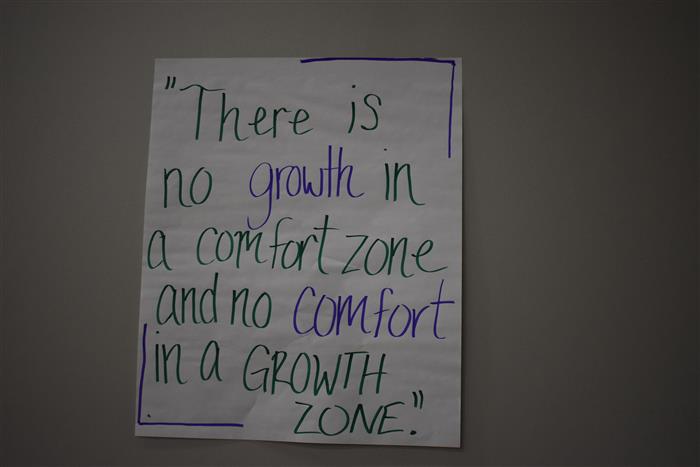 "There is
no growth in
a comfort zone
and no comfort
in a GROWTH
ZONE."